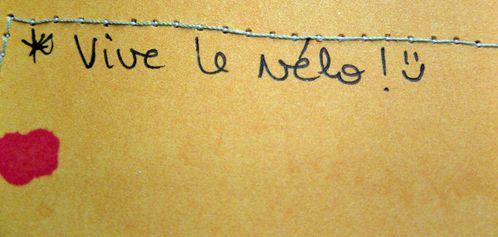 * Vive le vélo!